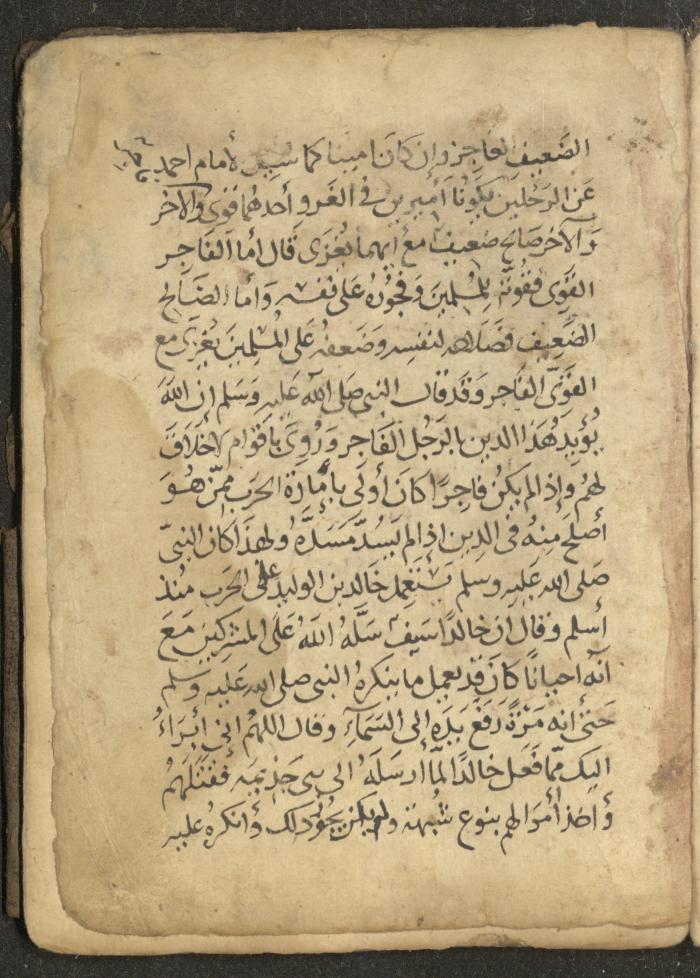 الضعيف العاجز وان كان امينا كما سئل الامام احمد
عَن الرَجُلَين يكونا أميرين في الغزو أحدهما قوي والآخر
وَالآخر صَالح ضعيف مع ايهما يُغزَى قَال أما الفَاجر
القوِى فقُوتُه لِلمُسلمينَ وَفجُورُه عَلى نفسه وَاما الصَالح
الضعِيف فصَلاحه لنفسِه وَضَعفه عَلى المُسلمِينَ يُغزَى مع
القوىّ الفَاجر وَقد قال النبى صَلى الله عَليه وَسَلم إن اللهَ
يُؤيد هَذا الدين بالرَجُل الفَاجر وَرُوِىَ باقوَام لا خَلاقَ
لهُم وَإذا لم يكُن فاجِرًا كانَ أولَى بإمَارَة الحَرب مِمّن هُوَ
أصلَح مِنهُ فى الدِين اذا لم يَسُدّ مَسَدَّهُ وَلهذَا كان النبىّ
صَلى الله عَليه وسلم يَستَعمِل خَالد بن الوليد على الحَرب مُنذ
أسلم وَقال ان خالدًا سَيف سَلَّهُ اللهُ عَلَى المشركينَ مَعَ
أنهُ احيانًا كانَ قد يعمِل ما ينكرهُ النبى صلى الله عَليه وَسَلم
حَتىَ أنه مَرّةً رَفَعَ يدَه إلى السَمَآءِ وقال اللهُم إنى أبرَاءُ
اليك ممّا فَعَل خالدًا لمّا أرسَلَهُ الى بنى جَذيمَه فقَتَلَهُم
وأخذ أموَالهم بنوع شُبهة ولم يكن يجُوز ذلك وَأنكرهُ عليه